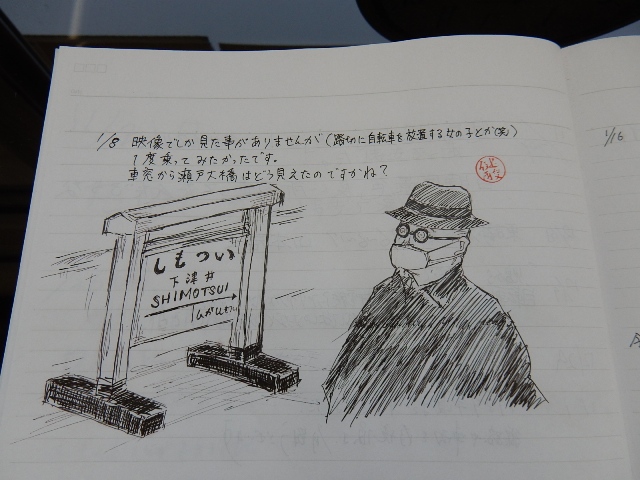 1/8 映像でしか見た事がありませんが(踏切に自転車を放置する女の子とか(笑)
1度乗ってみたかったです。
車窓から瀬戸大橋はどう見えたのですかね?
しもつい
下津井
SHIMOTSUI
1/16